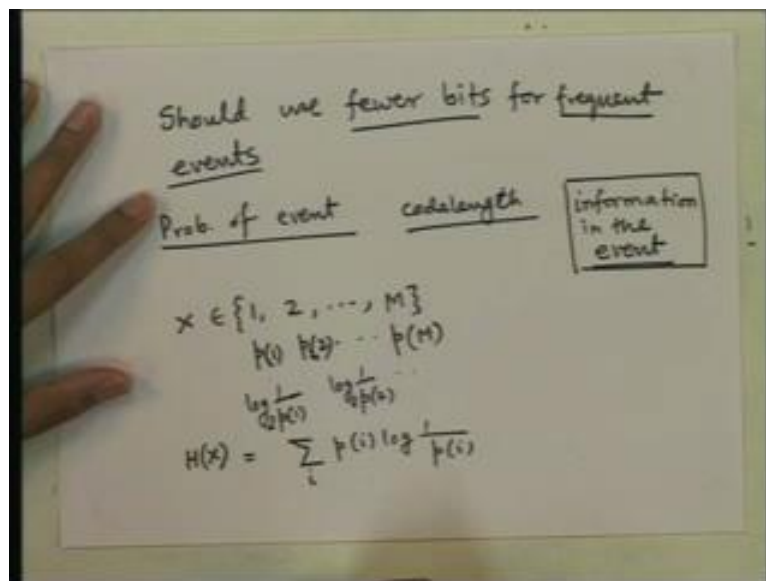 Should use fewer bits for frequent
events
Prob. of event codelength information
in the
event
X ∈ {1, 2, ..., M}
p(1) p(2) ... p(M)
log₂ 1/p(1) log₂ 1/p(2) ..
H(X) = ∑ᵢ p(i) log 1/p(i)